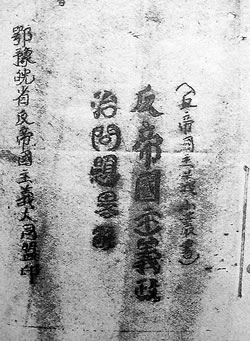 （反帝國主義小叢書）
反帝國主義政
治問題
鄂豫皖省反帝國主義大同盟印